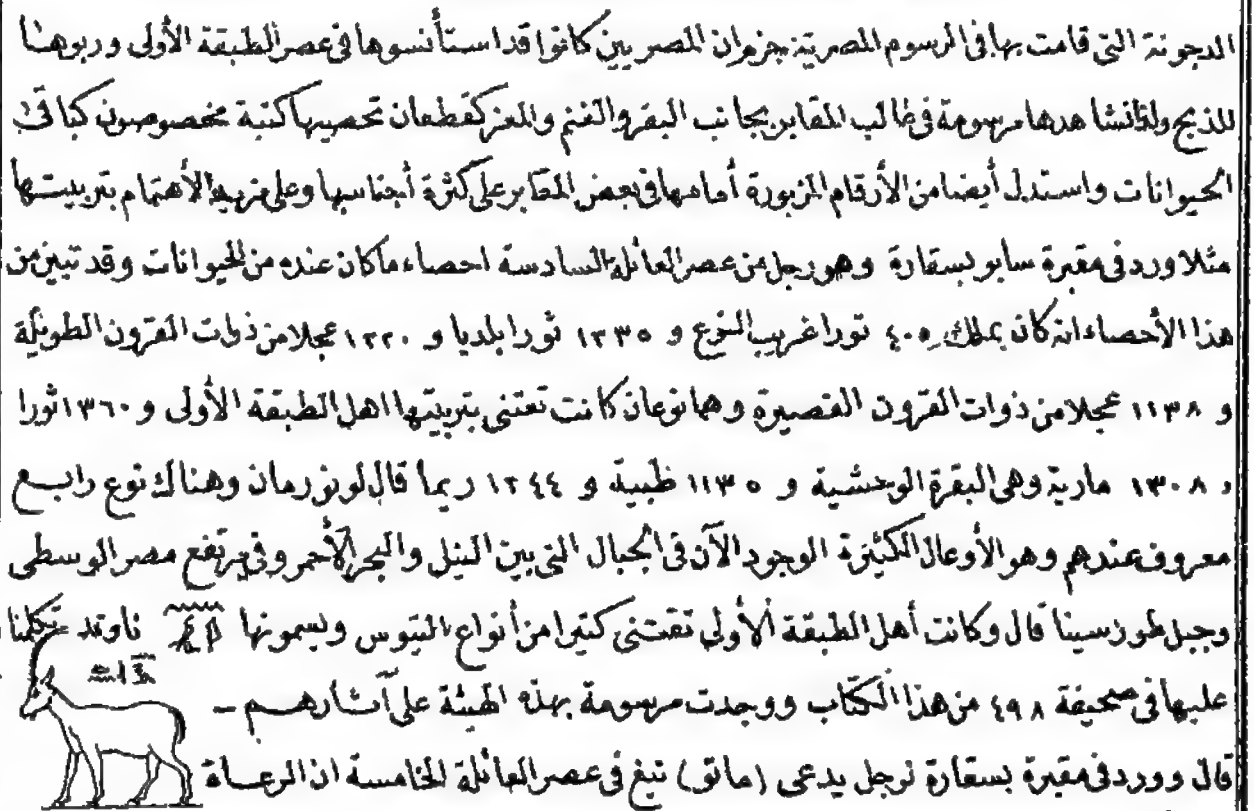 الدجونة التي قامت بها في الرسوم المصرية جزم ان المصريين كانوا قد استأنسوها في عصر الطبقة الأولى وربوها
للذبح ولذا نشاهدها مرسومة في غالب المقابر بجانب البقر والغنم والمعز كقطعان تحصيها كتبة مخصوصون كباقي
الحيوانات واستدل أيضا من الأرقام المزبورة أمامها في بعض المقابر على كثرة أجناسها وعلى مزيد الأهتمام بتربيتها
مثلا ورد في مقبرة سابو بسقارة وهو رجل من عصر العائلة السادسة احصاء ما كان عنده من الحيوانات وقد تبين من
هذا الأحصاء انه كان يملك ٤٠٥ ثورا غريب النوع و ١٣٣٥ ثورا بلديا و ١٢٢٠ عجلا من ذوات القرون الطويلة
و ١١٣٨ عجلا من ذوات القرون القصيرة وهما نوعان كانت تعتني بتربيتها اهل الطبقة الأولى و ١٣٦٠ ثورا
و ١٣٠٨ مارية وهي البقرة الوحشية و ١١٣٥ ظبية و ١٢٤٤ ريما قال لونورمان وهناك نوع رابع
معروف عندهم وهو الأوعال الكثيرة الوجود الآن في الجبال التي بين النيل والبحر الأحمر وفي مرتفع مصر الوسطى
وجبل طور سينا قال وكانت أهل الطبقة الأولى تقتني كثيرا من أنواع التيوس ويسمونها ناوتد تكلمنا
عليها في صحيفة ٤٩٨ من هذا الكتاب ووجدت مرسومة بهذه الهيئة على آثارهم –
قال وورد في مقبرة بسقارة لرجل يدعى (مانق) نبغ في عصر العائلة الخامسة ان الرعاة